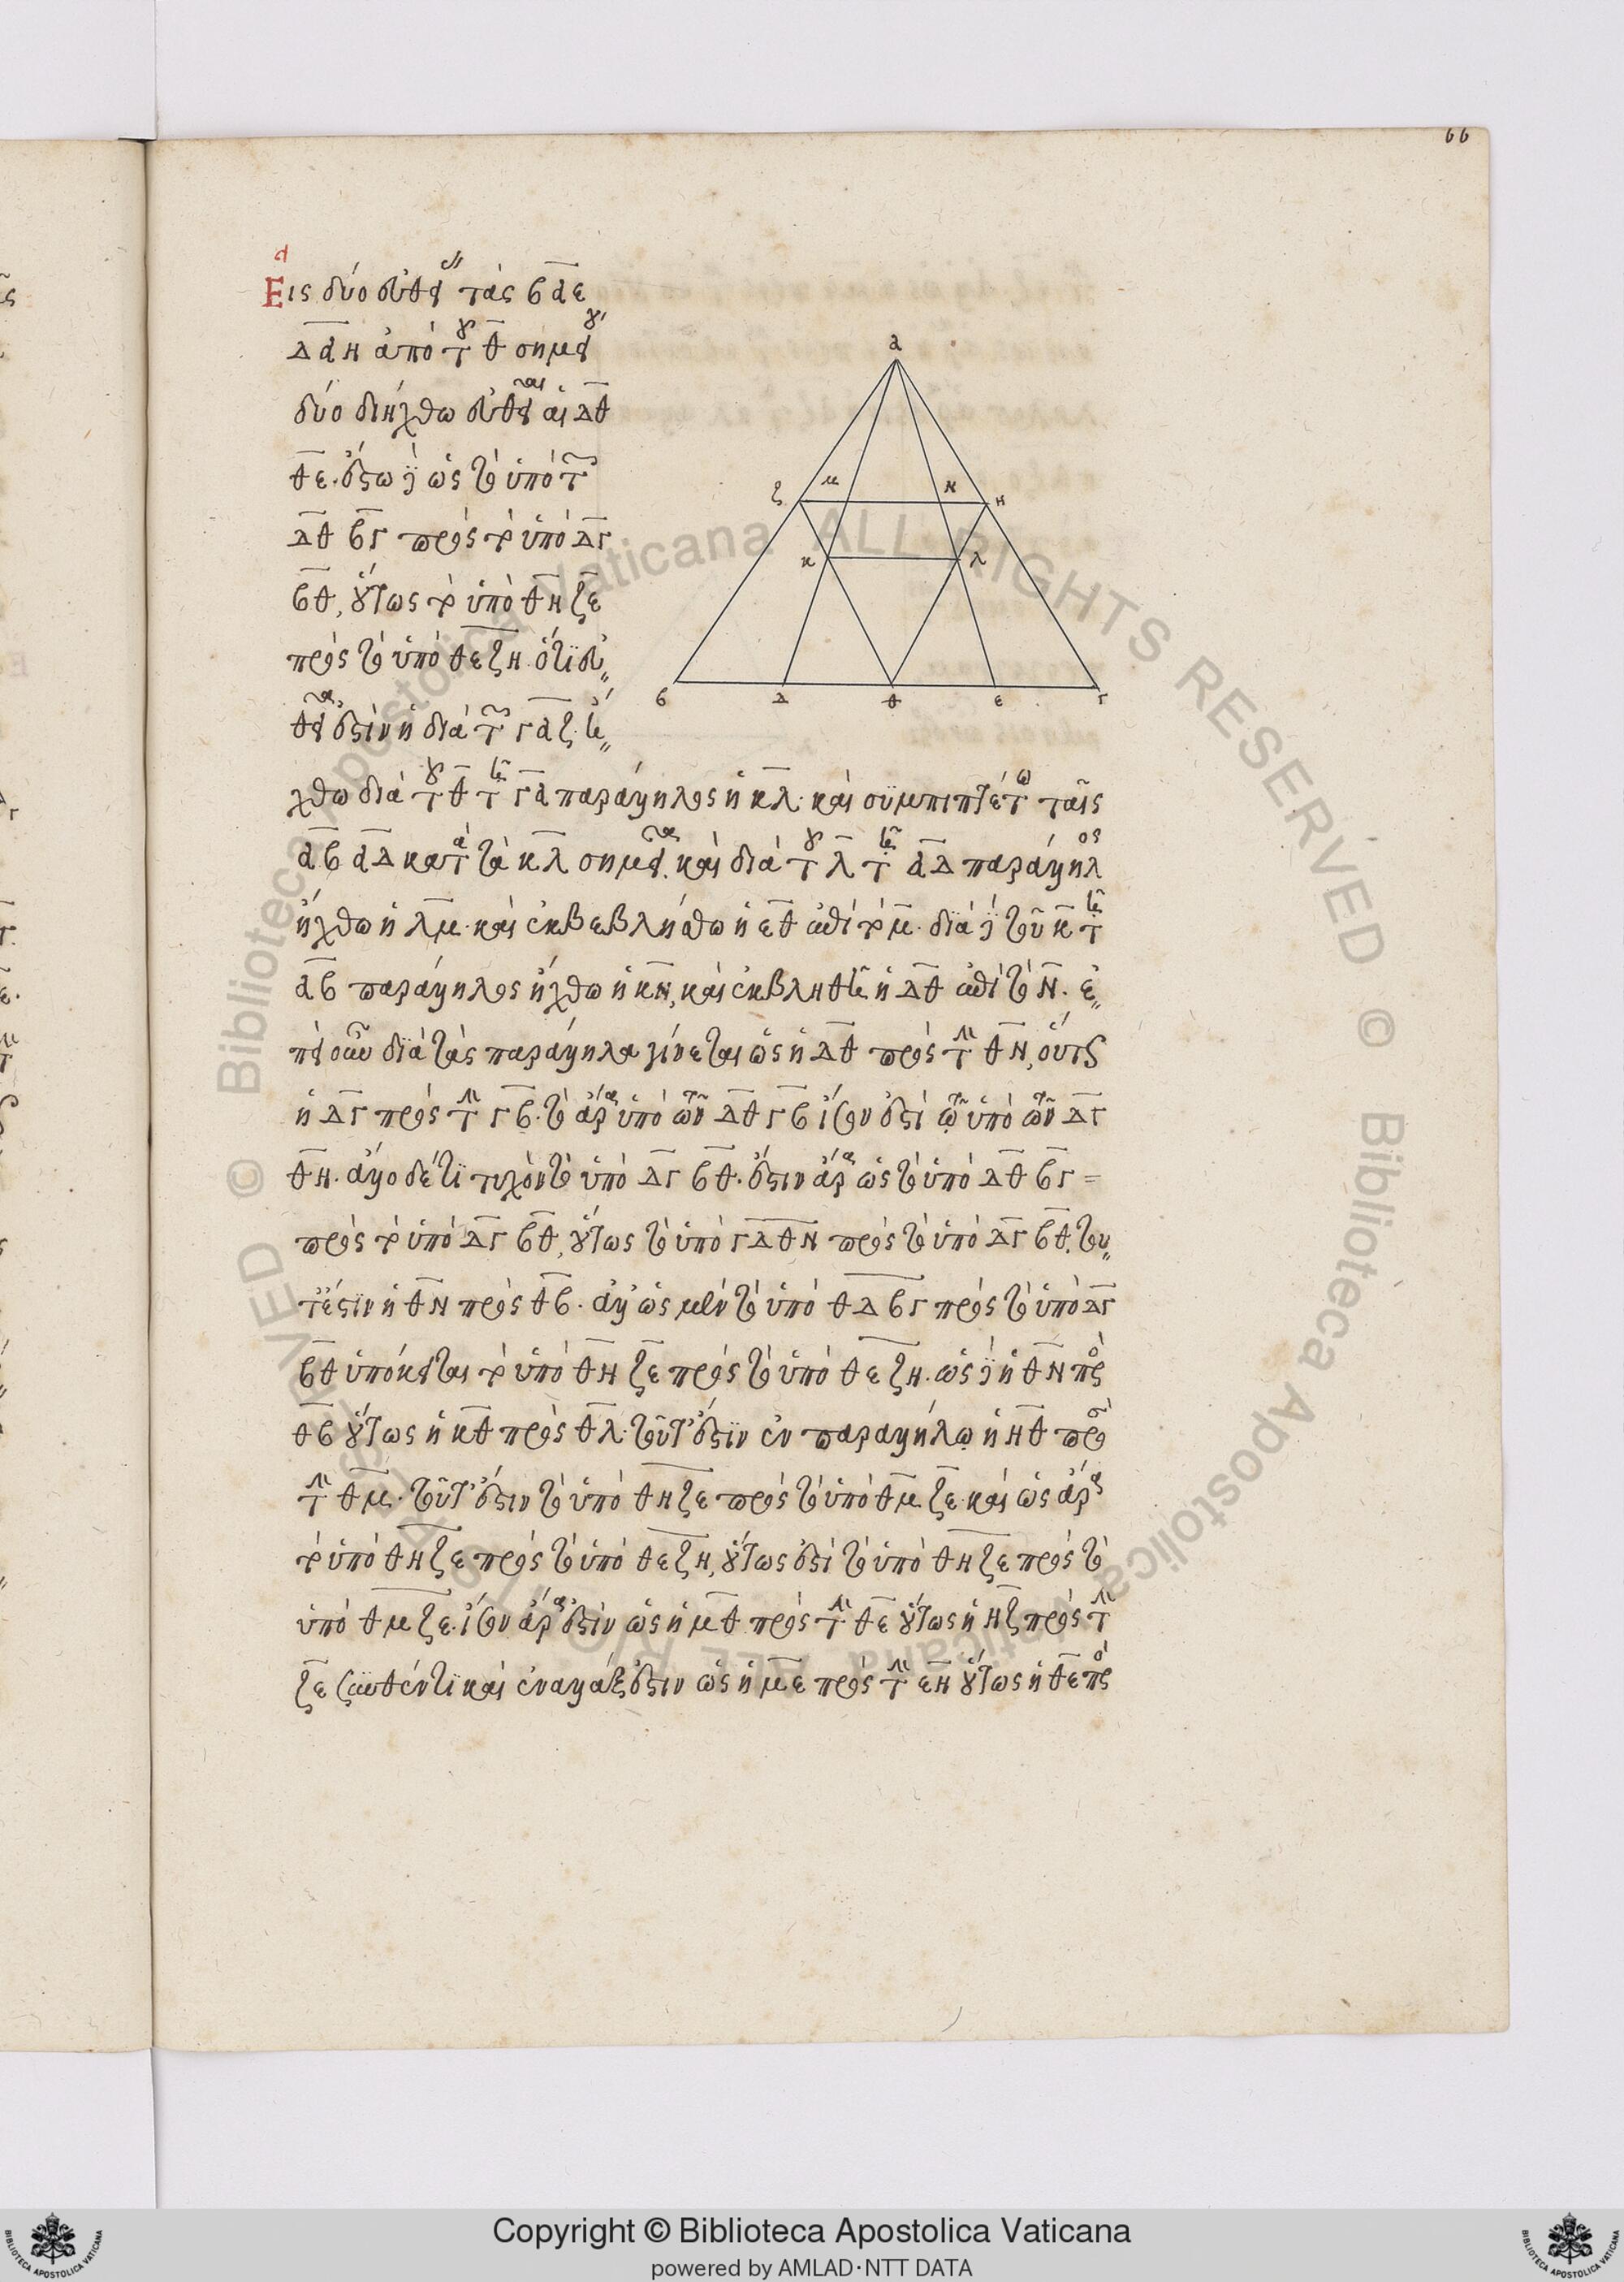 66
α
Εις δύο εὐθείας τὰς ΒΑΕ
ΔΑΗ ἀπὸ τοῦ Θ σημείου
δύο διήχθωσαν εὐθεῖαι αἱ ΔΘ
ΘΕ. ἔστω δὲ ὡς τὸ ὑπὸ τῶν
ΔΘ ΒΓ πρὸς τὸ ὑπὸ ΔΓ
ΒΘ, οὕτως τὸ ὑπὸ ΘΗ ΖΕ
πρὸς τὸ ὑπὸ ΘΕ ΖΗ. ὅτι εὐ
θεῖα ἐστὶν ἡ διὰ τῶν ΓΑΖ. ἤ
χθω διὰ τοῦ Θ τῇ ΓΑ παράλληλος ἡ ΚΛ. καὶ συμπιπτέτω ταῖς
ΑΒ ΑΔ κατὰ τὰ ΚΛ σημεῖα. καὶ διὰ τοῦ Λ τῇ ΑΔ παράλληλος
ἤχθω ἡ ΛΜ. καὶ ἐκβεβλήσθω ἡ ΕΘ ἐπὶ τὸ Μ. διὰ δὲ τοῦ Κ τῇ
ΑΒ παράλληλος ἤχθω ἡ ΚΝ, καὶ ἐκβληθῇ ἡ ΔΘ ἐπὶ τὸ Ν. ἐ
πεὶ οὖν διὰ τὰς παράλληλα γίνεται ὡς ἡ ΔΘ πρὸς τὴν ΘΝ, οὕτως
ἡ ΔΓ πρὸς τὴν ΓΒ. τὸ ἄρα ὑπὸ τῶν ΔΘ ΓΒ ἴσον ἐστὶ τῷ ὑπὸ τῶν ΔΓ
ΘΗ. ἄλλο δέ τι τυχὸν τὸ ὑπὸ ΔΓ ΒΘ. ἔστιν ἄρα ὡς τὸ ὑπὸ ΔΘ ΒΓ
πρὸς τὸ ὑπὸ ΔΓ ΒΘ, οὕτως τὸ ὑπὸ ΓΔ ΘΝ πρὸς τὸ ὑπὸ ΔΓ ΒΘ. του
τέστιν ἡ ΘΝ πρὸς ΘΒ. ἀλλ' ὡς μὲν τὸ ὑπὸ ΘΔ ΒΓ πρὸς τὸ ὑπὸ ΔΓ
ΒΘ ὑπόκειται τὸ ὑπὸ ΘΗ ΖΕ πρὸς τὸ ὑπὸ ΘΕ ΖΗ. ὡς δὲ ἡ ΘΝ πρὸς
ΘΒ οὕτως ἡ ΚΘ πρὸς ΘΛ. τοῦτ' ἔστιν ἐν παραλλήλῳ ἡ ΗΘ πρὸς
τὴν ΘΜ. τοῦτ' ἔστιν τὸ ὑπὸ ΘΗ ΖΕ πρὸς τὸ ὑπὸ ΘΜ ΖΕ. καὶ ὡς ἄρα
τὸ ὑπὸ ΘΗ ΖΕ πρὸς τὸ ὑπὸ ΘΕ ΖΗ, οὕτως ἐστὶ τὸ ὑπὸ ΘΗ ΖΕ πρὸς τὸ
ὑπὸ ΘΜ ΖΕ. ἴσον ἄρα ἐστὶν ὡς ἡ ΜΘ πρὸς τὴν ΘΕ οὕτως ἡ ΗΖ πρὸς τὴν
ΖΕ συνθέντι καὶ ἐναλλάξ ἐστιν ὡς ἡ ΜΕ πρὸς τὴν ΕΗ οὕτως ἡ ΘΕ πρὸς
α
ζ μ κ η
κ λ
β Δ θ ε Γ
Copyright © Biblioteca Apostolica Vaticana
powered by AMLAD·NTT DATA